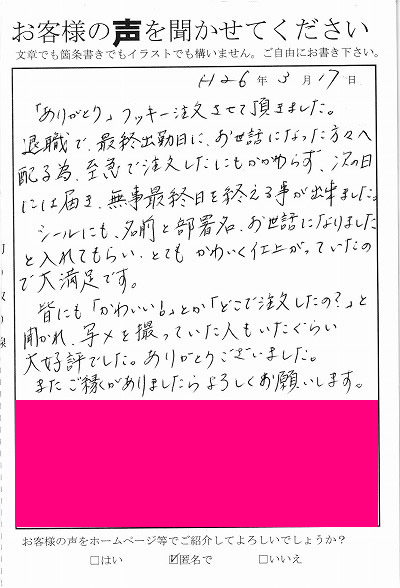 お客様の声を聞かせてください
文章でも箇条書きでもイラストでも構いません。ご自由にお書き下さい。
H26年3月17日
「ありがとう」クッキー注文させて頂きました。
退職で、最終出勤日に、お世話になった方々へ
配る為、至急で注文したにもかかわらず、次の日
には届き、無事最終日を終える事が出来ました。
シールにも、名前と部署名、お世話になりました
と入れてもらい、とてもかわいく仕上がっていたの
で大満足です。
皆にも「かわいい!」とか「どこで注文したの?」と
聞かれ、写メを撮っていた人もいたぐらい
大好評でした。ありがとうございました。
またご縁がありましたらよろしくお願いします。
お客様の声をホームページ等でご紹介してよろしいでしょうか?
□はい ☑匿名で □いいえ